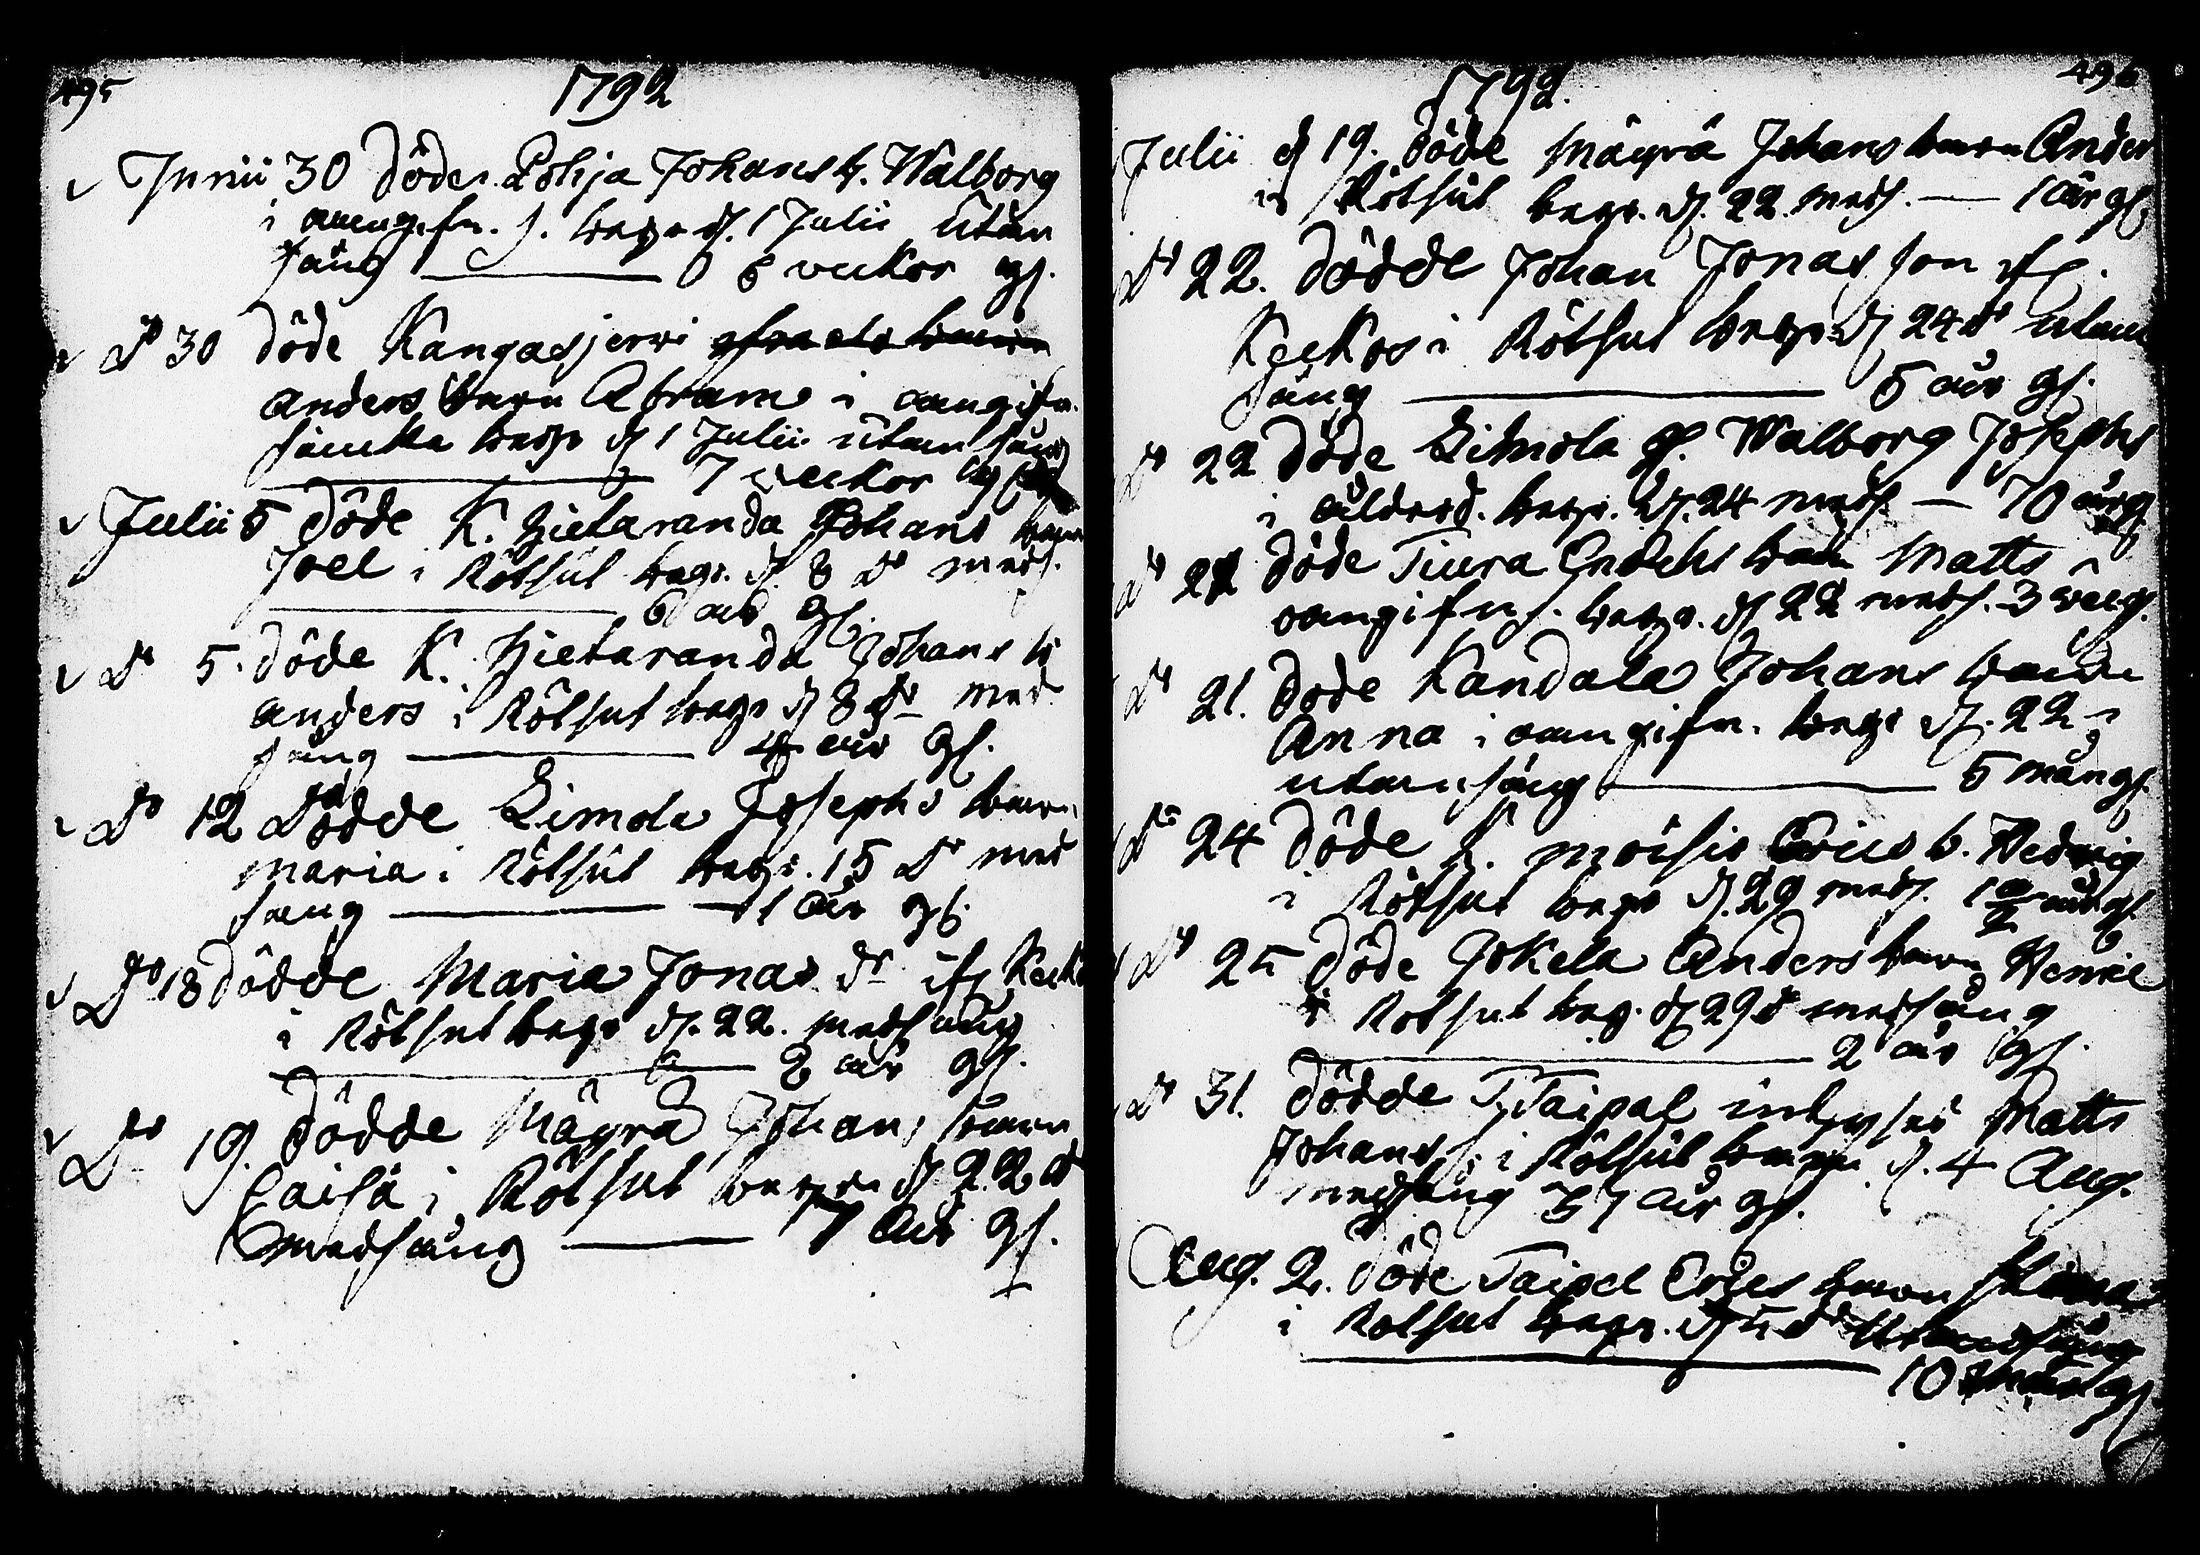 495
1792
Junii 30 döde Pohja Johans b. Walborg
i oangifn. s. begr. d. 1 Julii utan
sång — 6 veckor gl.
Do 30 döde Kangasjerwi
Anders barn Abram i oangifn.
siucka begr d 1 Julii utan sång
— 7 veckor
Julii 5 döde K. Hietaranda Johans barn
Joel i Rötsut begr. d. 8 do meds.
— 6 år gl.
Do 5. döde K. Hietaranda Johans b
Anders i Rötsut begr d 8 do med
sång — 4 år gl.
Do 12 dödde Limola Josephs barn
Maria i Rötsut begr. 15 do med
sång — 1 år gl.
Do 18 dödde Maria Jonas dr ifr Kecko
i Rötsut begr d. 22. medsång
— 2 år gl.
Do 19. dödde Mäyrä Johans barn
Caisa i Rötsut begr d 22 do
medsång — 7 år gl.
496
1792.
Julii d 19. döde Mäyrä Johans barn Anders
i Rötsut begr. d. 22. meds. — 1 år gl.
Do 22. dödde Johan Jonas son ifr.
Keckos i Rötsut begr d 24 do utan
sång — 5 år gl.
Do 22 döde Limola Walborg Josephs
i ålderd. begr. d. 24 meds. — 70 år gl
Do döde Tiura Endichs barn Matts
oangifn s. begr. d 22 meds. 3 v gl.
Do 21. döde Kandala Johans barn
Anna i oangifn. begr d. 22
utan sång — 5 mån gl.
Do 24 döde L. Moisis Erics b. Hedvig
i Rötsut begr d. 29 meds. 1 1/2 år gl.
Do 25 döde Jokela Anders barn Henric
i Rotsut beg. d 29 d medsång
— 2 år gl.
Do 31. dödde Taipal inhyses Matts
Johans s i Rötsut begr. d. 4 Aug.
medsång 37 år gl.
Aug. 2. döde Taipal Erics barn
i Rötsut begr. d 5 do
— 10 gl.